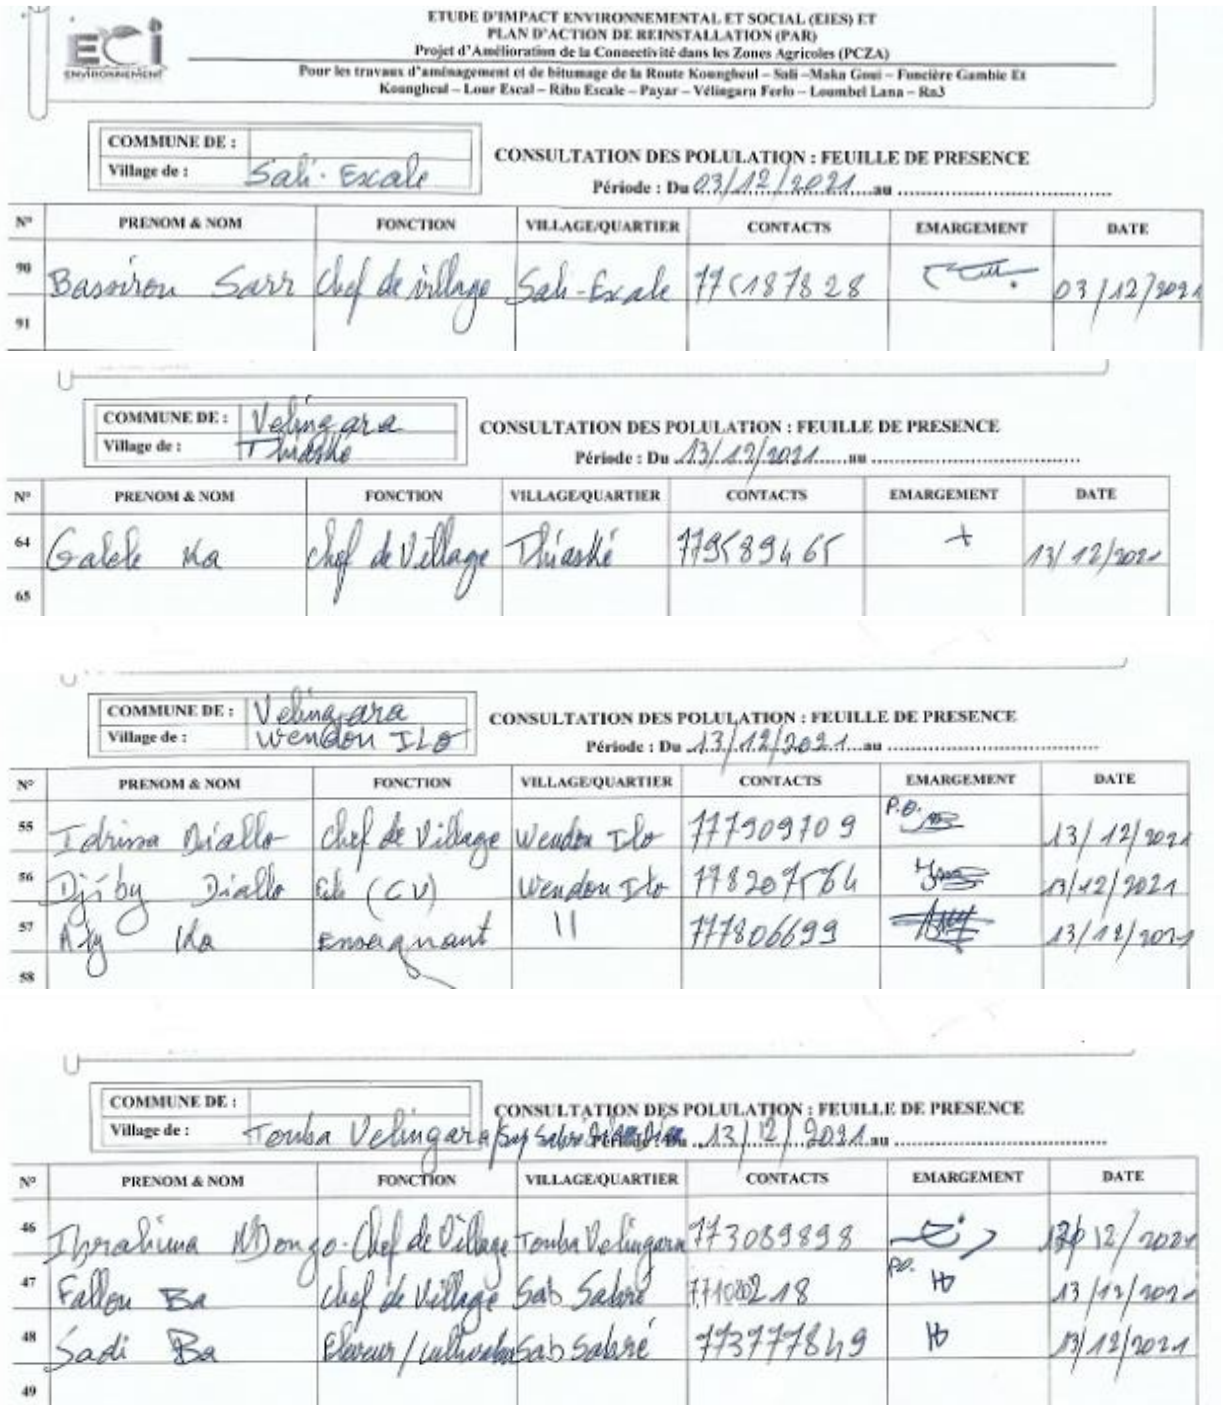 ECI
ENVIRONNEMENT
ETUDE D'IMPACT ENVIRONNEMENTAL ET SOCIAL (EIES) ET
PLAN D'ACTION DE REINSTALLATION (PAR)
Projet d'Amélioration de la Connectivité dans les Zones Agricoles (PCZA)
Pour les travaux d'aménagement et de bitumage de la Route Koungheul – Sali –Maka Goui – Foncière Gambie Et
Koungheul – Lour Escal – Ribo Escale – Payar – Vélingara Ferlo – Loumbel Lana – Rn3
COMMUNE DE :
Village de : Sali-Escale
CONSULTATION DES POLULATION : FEUILLE DE PRESENCE
Période : Du 03/12/2021 au
N° PRENOM & NOM FONCTION VILLAGE/QUARTIER CONTACTS EMARGEMENT DATE
90 Bassirou Sarr Chef de village Sali-Escale 775187828 03/12/2021
91
COMMUNE DE : Velingara
Village de : Thiaské
CONSULTATION DES POLULATION : FEUILLE DE PRESENCE
Période : Du 13/12/2021 au
N° PRENOM & NOM FONCTION VILLAGE/QUARTIER CONTACTS EMARGEMENT DATE
64 Galele Ka Chef de Village Thiaské 779589465 + 13/12/2021
65
COMMUNE DE : Velingara
Village de : Wendou ILO
CONSULTATION DES POLULATION : FEUILLE DE PRESENCE
Période : Du 13/12/2021 au
N° PRENOM & NOM FONCTION VILLAGE/QUARTIER CONTACTS EMARGEMENT DATE
55 Idrissa Diallo Chef de Village Wendou Ilo 777909709 P.O. 13/12/2021
56 Djiby Diallo (CV) Wendou Ilo 778207564 13/12/2021
57 Aly Ka Enseignant 11 777806699 13/12/2021
58
COMMUNE DE :
Village de : Touba Velingara/Sap Sabré
CONSULTATION DES POLULATION : FEUILLE DE PRESENCE
13/12/2021 au
N° PRENOM & NOM FONCTION VILLAGE/QUARTIER CONTACTS EMARGEMENT DATE
46 Ibrahima NDongo Chef de Village Touba Velingara 773089898 12/2021
47 Fallou Ba Chef de Village Sab Sabré PO. 13/12/2021
48 Sadi Ba Eleveur/cultivateur Sab Sabré 773777849 13/12/2021
49